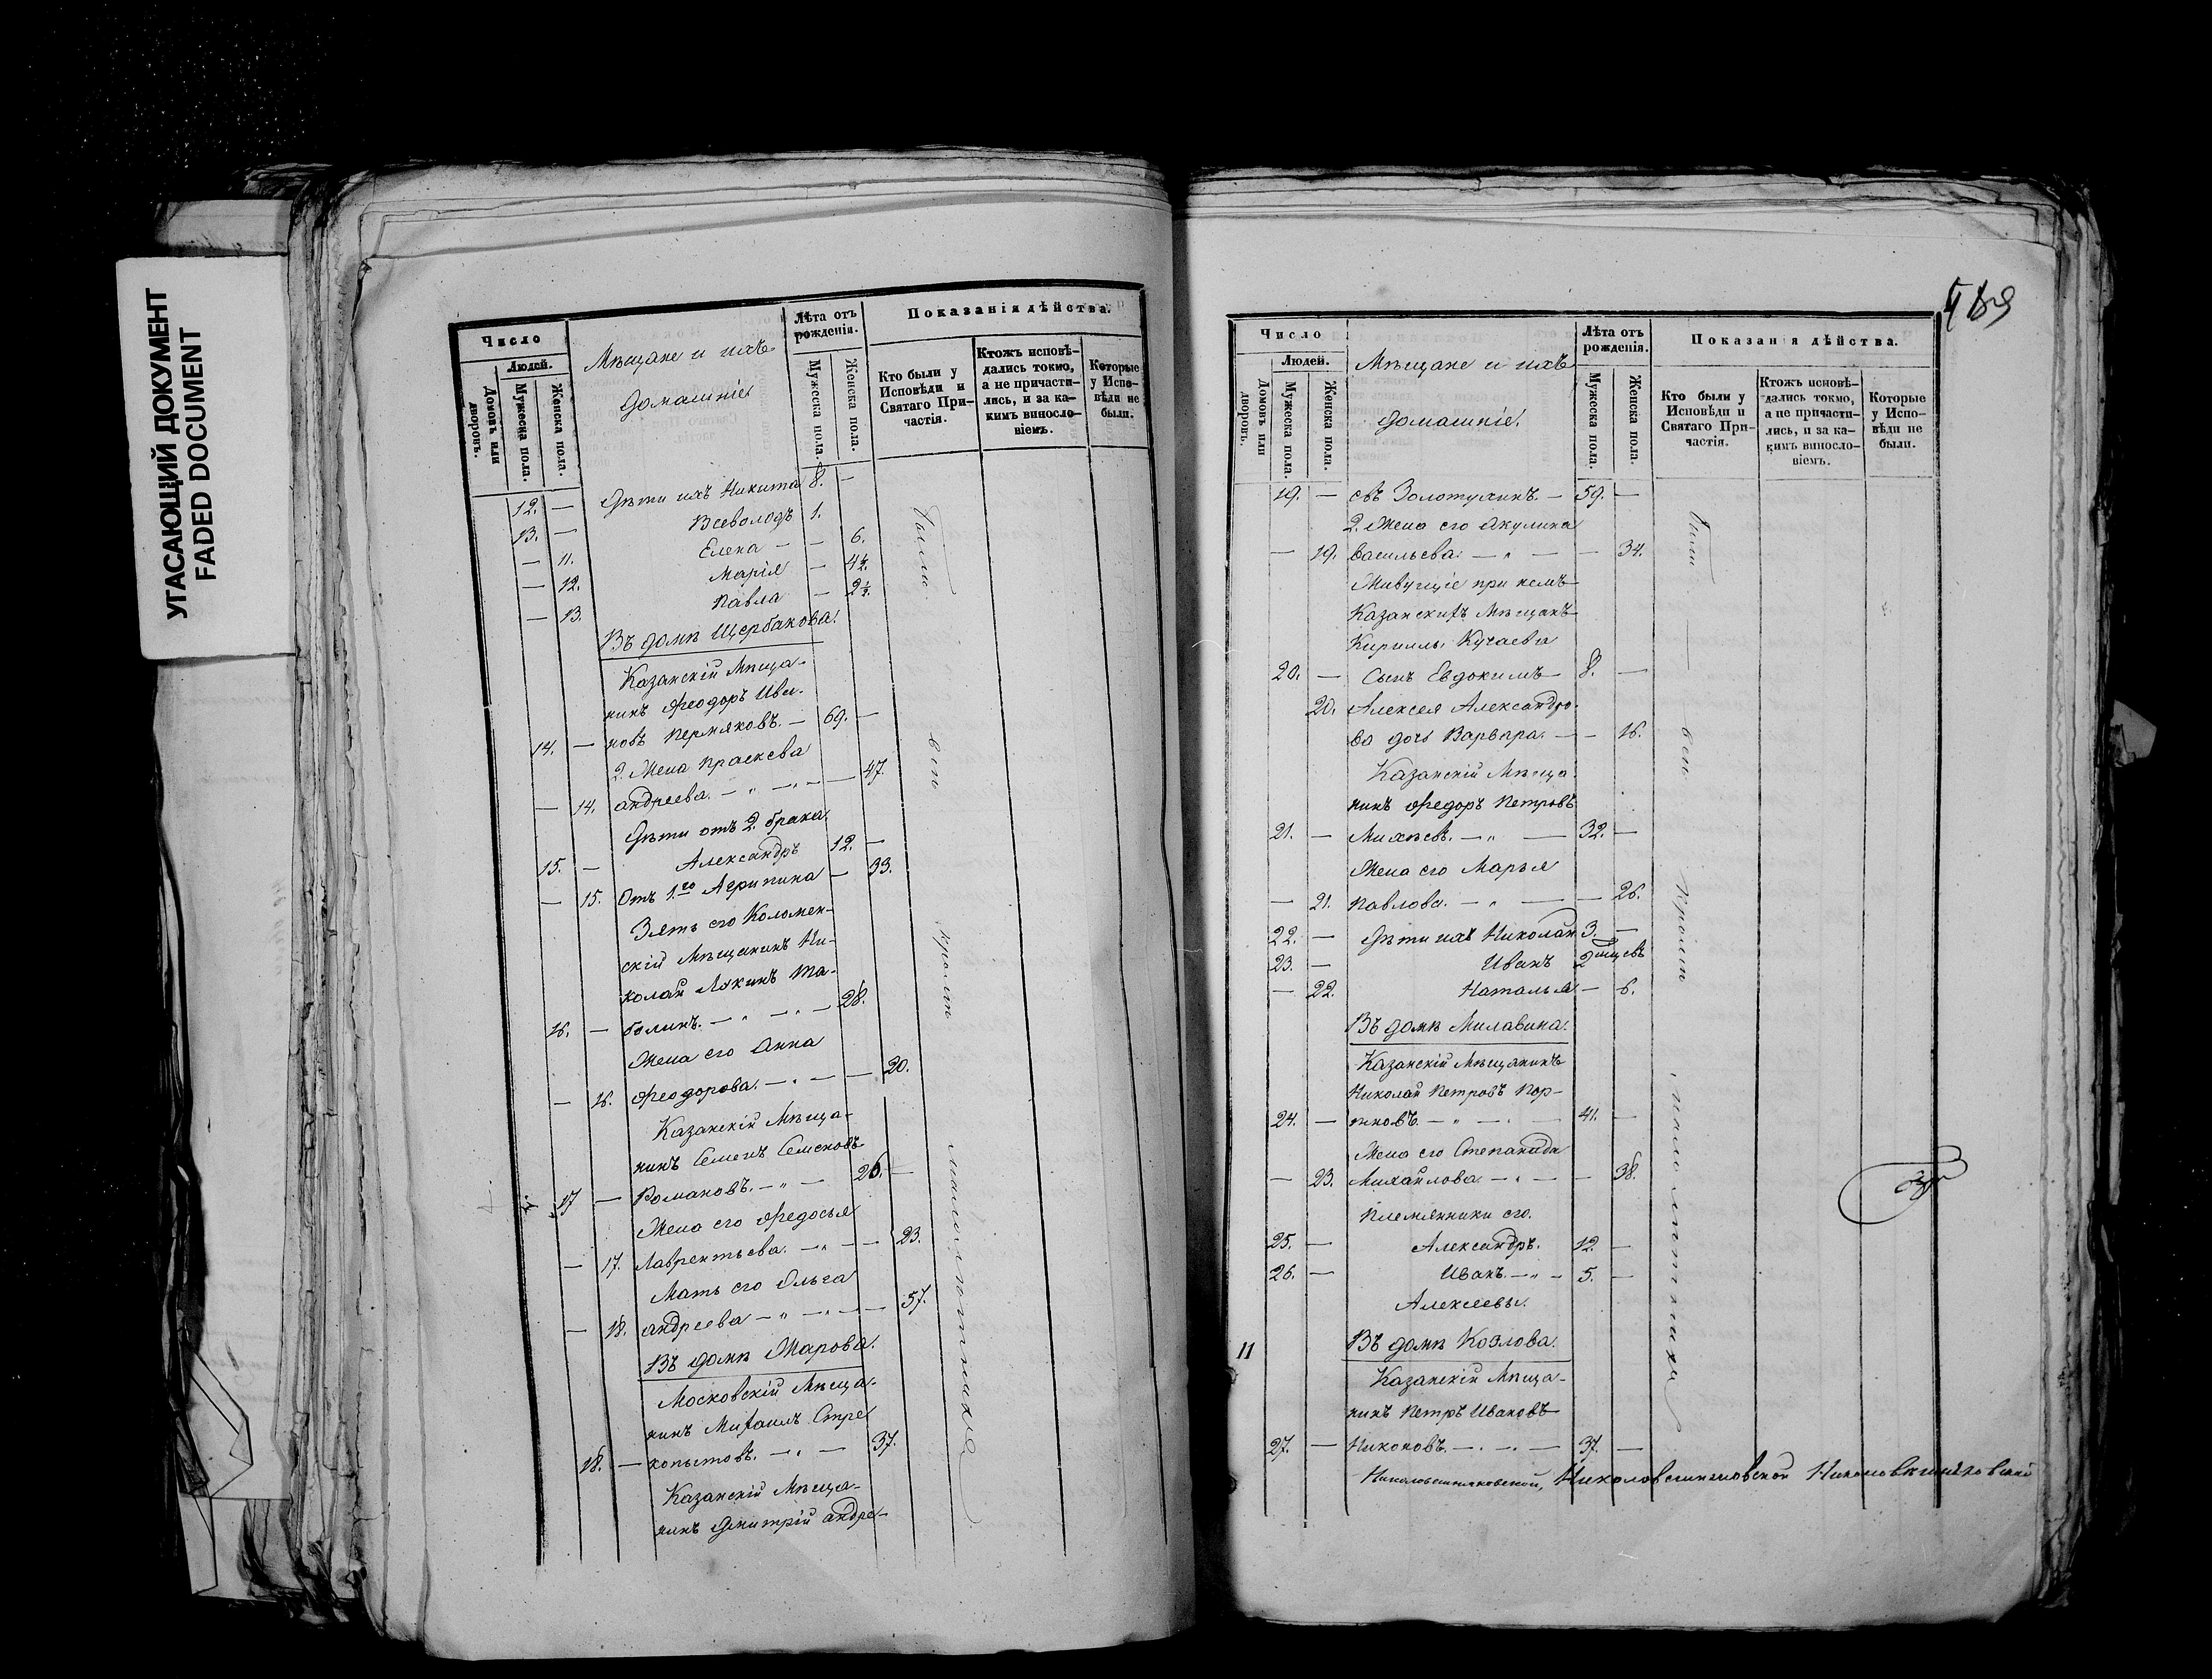 УГАСАЮЩИЙ ДОКУМЕНТ
FADED DOCUMENT
Число
Людей.
Домовъ или дворовъ.
Мужеска пола.
Женска пола.
Мѣщане и ихъ
домашніе
Лѣта отъ рожденія.
Мужеска пола.
Женска пола.
Показанія дѣйства.
Кто были у Исповѣди и Святаго Причастія.
Ктожъ исповѣдались токмо, а не причастились, и за какимъ винословіемъ.
Которые у Исповѣди не были.
12. — Дѣти ихъ Никита 8. —
13. — Всеволодъ 1.
— 11. Елена — — 6.
— 12. Марія — 4½.
— 13. Павла — 2½.
Въ домѣ Щербакова.
Казанскій Мѣща-
нинъ Ѳеодоръ Ива-
14. — новъ Пермяковъ. — 69. —
2. Жена Праскева
— 14. Андреева. — „ — „ — 47.
Дѣти отъ 2. брака
15. — Александръ 12. —
— 15. Отъ 1.го Агрипина — 33.
Зять его Коломен-
скій Мѣщанинъ Ни-
колай Лукинъ Та-
16. — болинъ. — „ — „ — 28.
Жена его Анна
— 16. Ѳеодорова. — „ — — 20.
Казанскій Мѣща-
нинъ Семенъ Семеновъ
17 — Романовъ. — „ — 26. —
Жена его Ѳедосья
— 17. Лаврентьева. — „ — — 23.
Мать его Ольга
— 18. Андреева — „ — „ — 57.
Въ домѣ Жарова.
Московскій Мѣща-
нинъ Михаилъ Стре
18. — копытовъ. — „ — 37.
Казанскій Мѣща-
нинъ Дмитрій Андре-
Были всѣ кромѣ малолѣтнихъ
Число
Людей.
Домовъ или дворовъ.
Мужеска пола
Женска пола.
Мѣщане и ихъ
домашніе.
Лѣта отъ рожденія.
Мужеска пола.
Женска пола.
Показанія дѣйства.
Кто были у Исповѣди и Святаго Причастія.
Ктожъ исповѣдались токмо, а не причастились, и за какимъ винословіемъ.
Которые у Исповѣди не были.
19. — евъ Золотухинъ. — 59. —
2. Жена его Акулина
— 19. Васильева. — „ — — 34.
Живущіе при немъ
Казанскихъ Мѣщанъ
Кириллы Кучаева
20. — Сынъ Евдокимъ — 8. —
20. Алексея Александро-
ва дочь Варвара. — — 16.
Казанскій Мѣща-
нинъ Ѳедоръ Петровъ
21. — Михѣевъ. — „ — 32. —
Жена его Марья
— 21. Павлова. — „ — — 26.
22. — Дѣти ихъ Николай 3. —
23. — Иванъ 2 мѣсцевъ
— 22. Наталья — 6.
Въ домѣ Милавина.
Казанскій Мѣщанинъ
Николай Петровъ Пор-
24. — тновъ. — „ — . — 41. —
Жена его Степанида
— 23. Михайлова. — „ — — 38.
Племянники его.
25. — Александръ. 12. —
26. — Иванъ. — „ — 5. —
Алексеевы.
Въ домѣ Козлова.
11
Казанскій Мѣща-
нинъ Петръ Ивановъ
27. — Никоновъ. — . — „ — 37. —
Были — всѣ кромѣ малолѣтнихъ